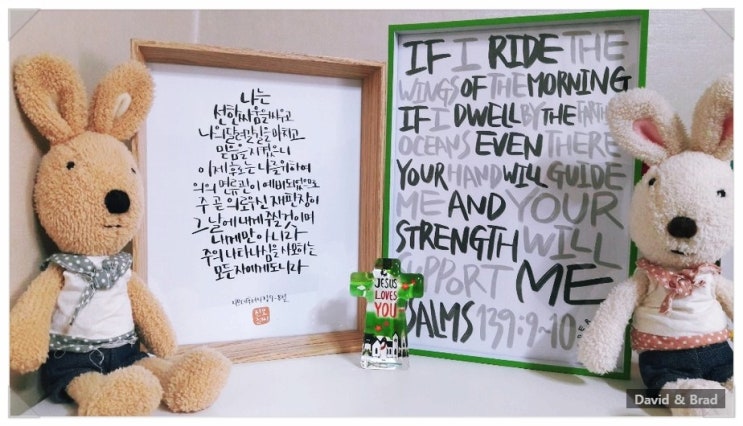 나는
선한 싸움을 싸우고
나의 달려갈 길을 마치고
믿음을 지켰으니
이제 후로는 나를 위하여
의의 면류관이 예비되었으므로
주 곧 의로우신 재판장이
그 날에 내게 주실 것이며
내게만 아니라
주의 나타나심을 사모하는
모든 자에게도니라
IF I RIDE THE
WINGS OF THE MORNING
IF I DWELL BY THE FARTHEST
OCEANS EVEN THERE
YOUR HAND WILL GUIDE
ME AND YOUR
STRENGTH WILL
SUPPORT ME
PSALMS 139:9~10
JESUS
LOVES
YOU
David & Brad